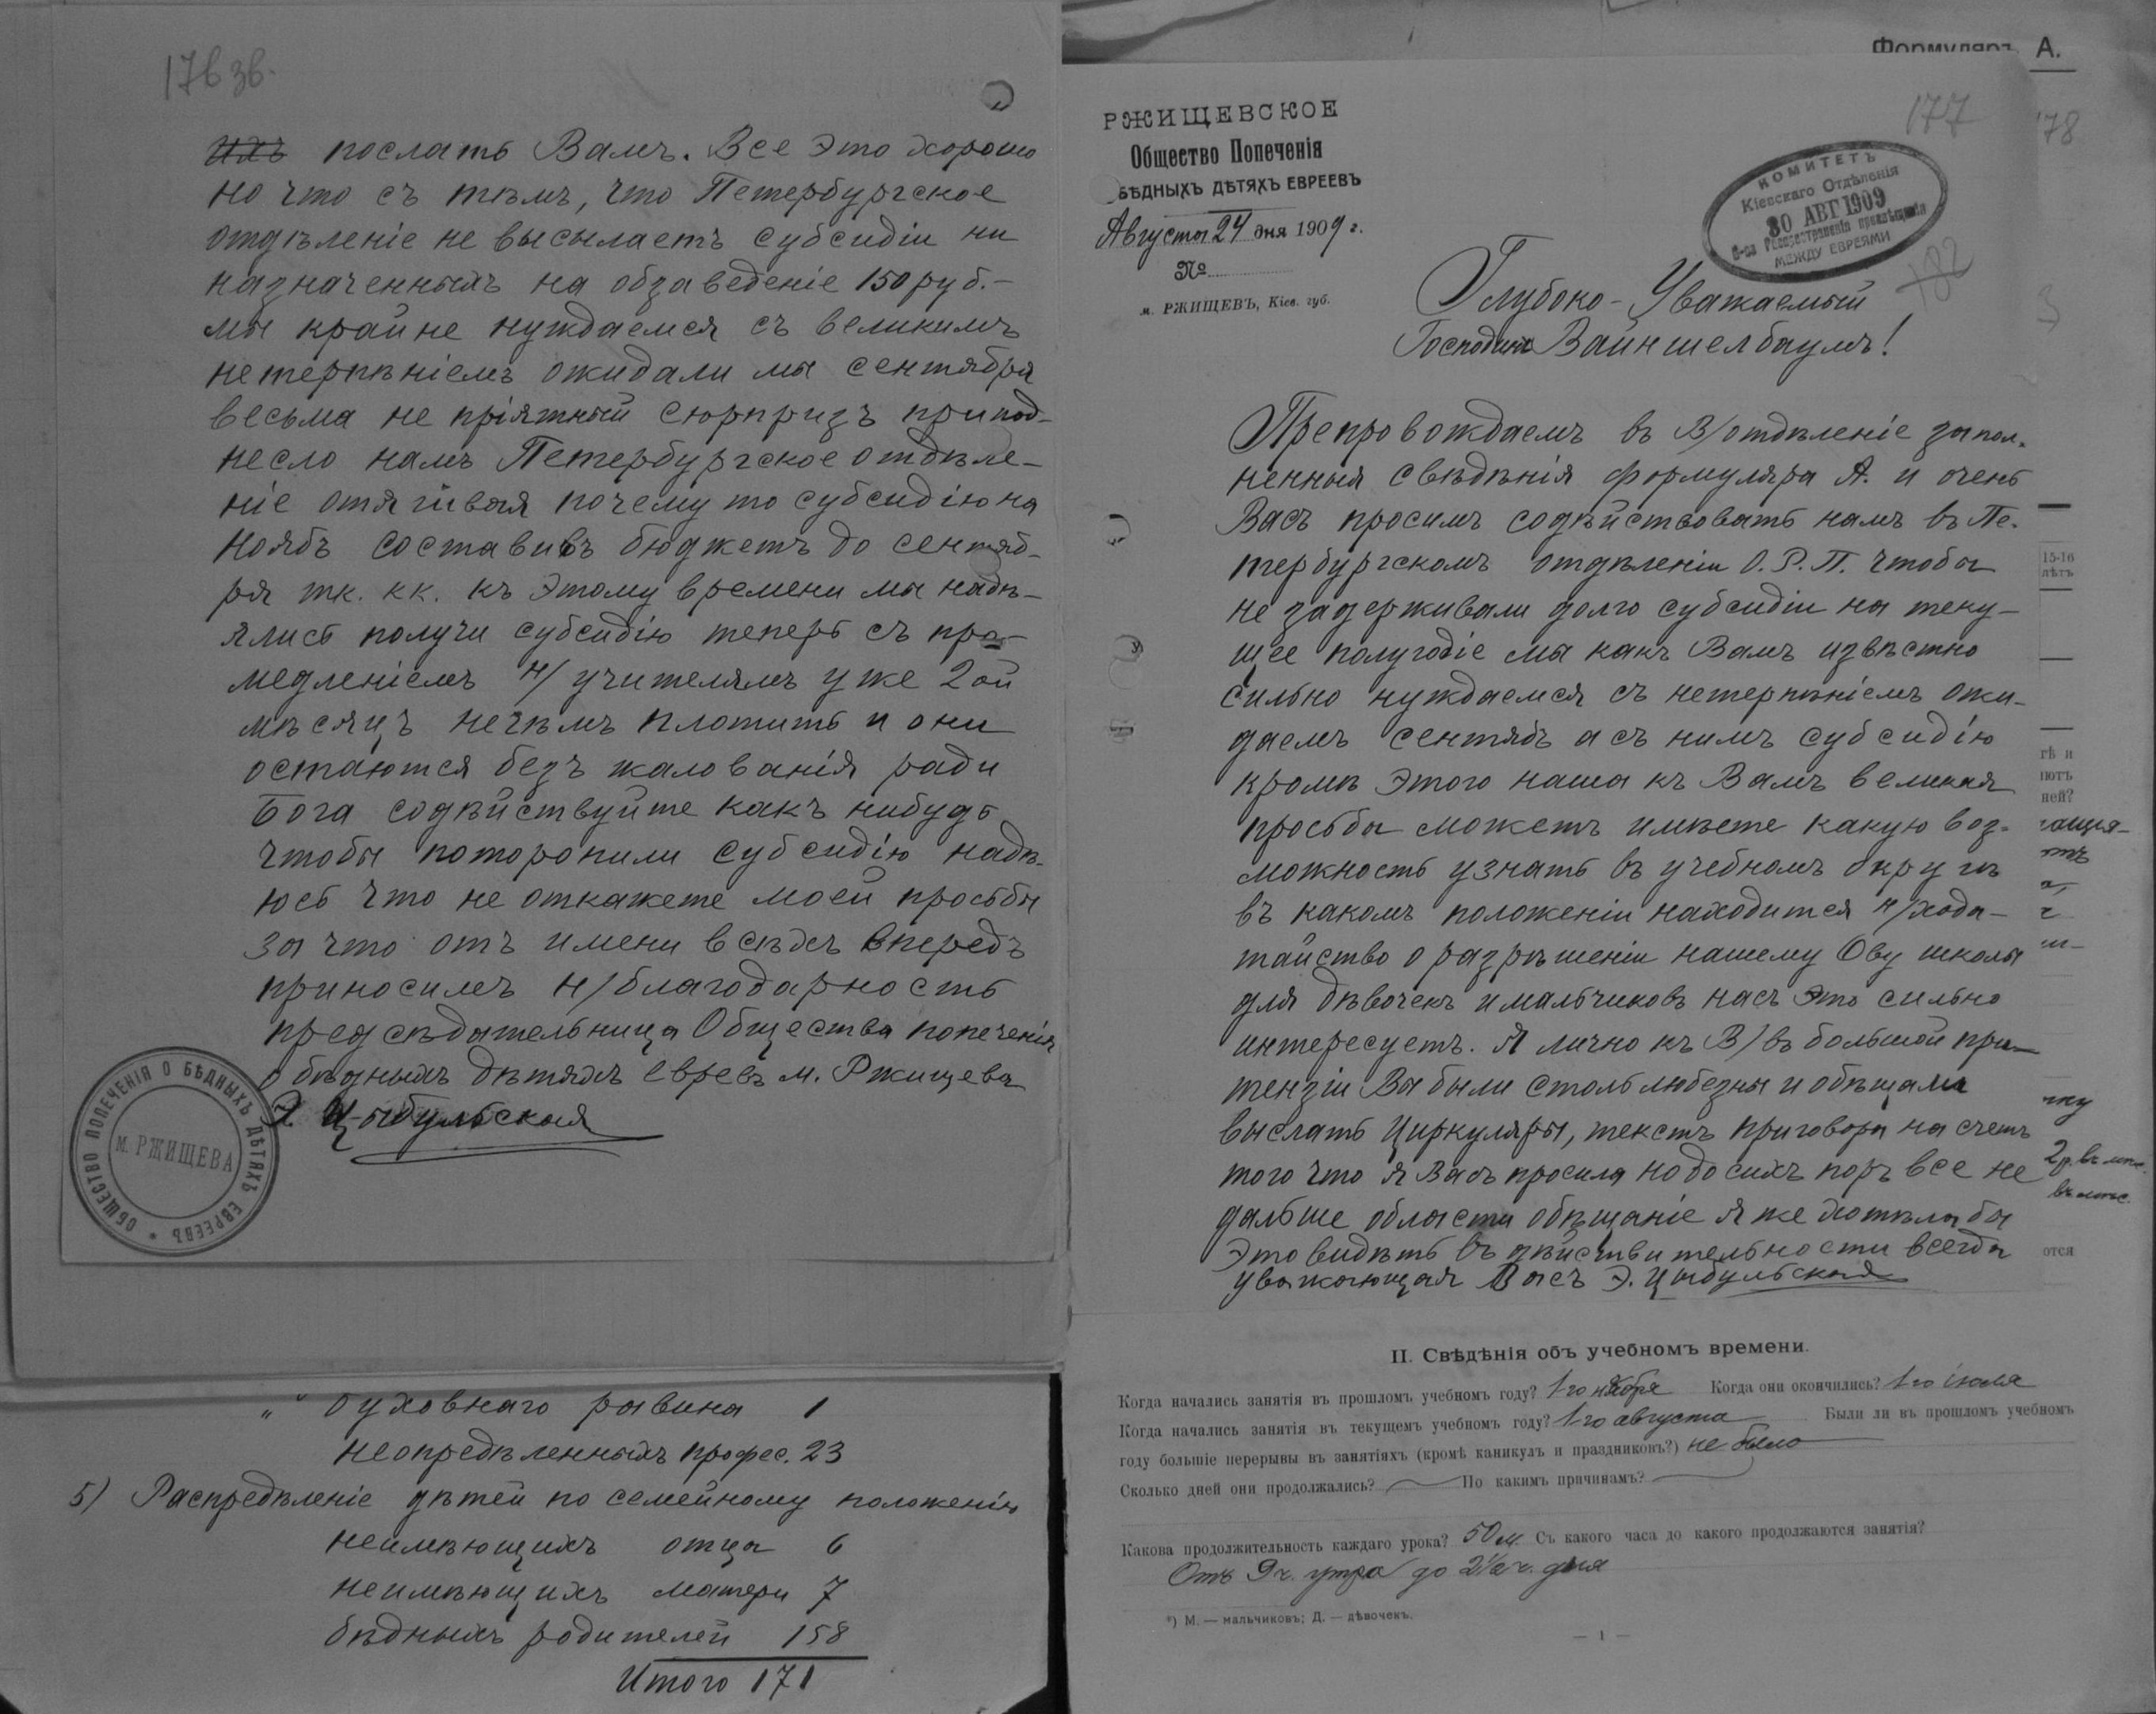 176 зв.
ихъ послать Вамъ. Все это хорошо
но что съ тѣмъ, что Петербургское
отдѣленіе не высылаетъ субсидіи ни
назначенныхъ на обзаведеніе 150 руб.-
мы крайне нуждаемся съ великимъ
нетерпѣніемъ ожидали мы сентября
весьма не пріятный сюрпризъ препод-
несло намъ Петербургское отдѣле-
ніе отягивая почему то субсидію на
Ноябъ составивъ бюджетъ до сентяб-
ря тк. кк. къ этому времени мы надѣ-
ялись получи субсидію теперь съ про-
медленіемъ н/ учителямъ уже 2ой
мѣсяцъ нечѣмъ платить и они
остаются безъ жалованія ради
Бога содѣйствуйте какъ нибудь
чтобы поторопили субсидію надѣ-
юсь что не откажете моей просьбы
за что отъ имени всѣхъ впередъ
приносимъ н/благодарность
предсѣдательница Общества попеченія
о бѣдныхъ дѣтяхъ евревъ м. Ржищева
Э. Цыбульская
ОБЩЕСТВО ПОПЕЧЕНІЯ О БѢДНЫХЪ ДѢТЯХЪ ЕВРЕЕВЪ
М. РЖИЩЕВА
" духовнаго равина 1
неопредѣленныхъ профес. 23
5) Распредѣленіе дѣтей по семейному положенію
неимѣющихъ отца 6
неимѣющихъ матери 7
бѣдныхъ родителей 158
Итого 171
Формуляръ А.
177
178
182
РЖИЩЕВСКОЕ
Общество Попеченія
БѢДНЫХЪ ДѢТЯХЪ ЕВРЕЕВЪ
Августа 24 дня 1909 г.
№
м. РЖИЩЕВЪ, Кіев. губ.
КОМИТЕТЪ
Кіевскаго Отдѣленія
30 АВГ 1909
О-ва Распространенія просвѣщенія
МЕЖДУ ЕВРЕЯМИ
Глубоко-Уважаемый
Господинъ Вайншелбаумъ!
Препровождаемъ въ В/отдѣленіе запол-
ненныя свѣдѣнія формуляра А. и очень
Васъ просимъ содѣйствовать намъ въ Пе-
тербургскомъ отдѣленіи О.Р.П. чтобы
не задерживали долго субсидіи на теку-
щее полугодіе мы какъ Вамъ извѣстно
сильно нуждаемся съ нетерпѣніемъ ожи-
даемъ сентябъ а съ нимъ субсидію
кромѣ этого наша къ Вамъ великая
просьба можетъ имѣете какую воз-
можность узнать въ учебномъ округѣ
въ какомъ положеніи находится н/хода-
тайство о разрѣшеніи нашему Ову школы
для дѣвочекъ и мальчиковъ насъ это сильно
интересуетъ. Я лично къ В/ въ большой при-
тензіи Вы были столь любезны и обѣщали
выслать Циркуляры, текстъ приговора на счетъ
того что я Васъ просила но до сихъ поръ все не
дальше области обѣщаніе я же хотѣла бы
это видѣть въ дѣйствительности всегда
уважающая Васъ Э. Цыбульская
15-16
лѣтъ
ней?
отся
II. Свѣдѣнія объ учебномъ времени.
Когда начались занятія въ прошломъ учебномъ году? 1го ноября Когда они окончились? 1го іюля
Когда начались занятія въ текущемъ учебномъ году? 1го августа Были ли въ прошломъ учебномъ
году большіе перерывы въ занятіяхъ (кромѣ каникулъ и праздниковъ?) не было
Сколько дней они продолжались? По какимъ причинамъ?
Какова продолжительность каждаго урока? 50 м. Съ какого часа до какого продолжаются занятія?
Отъ 9 ч. утра до 2½ ч. дня
*) М. — мальчиковъ; Д. — дѣвочекъ.
— 1 —